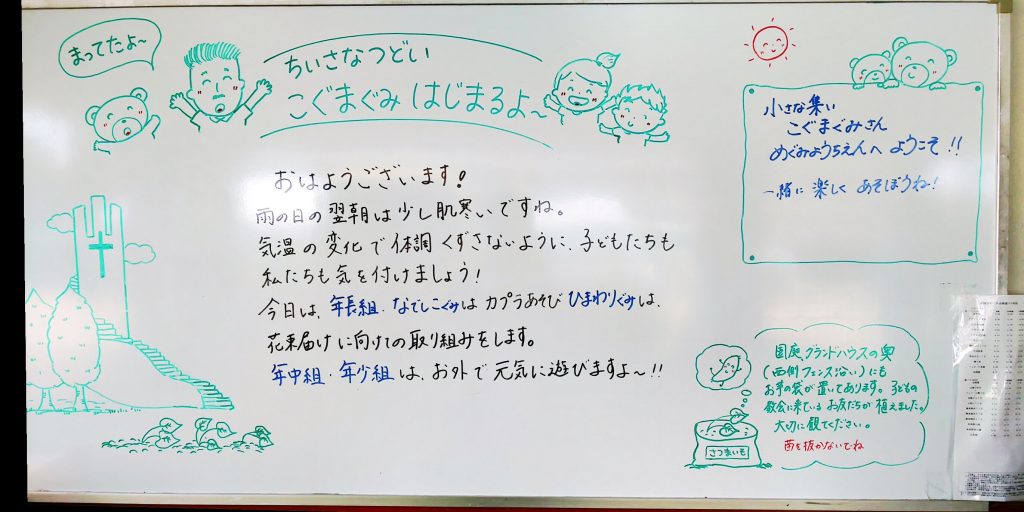 まってたよ〜
ちいさなつどい
こぐまぐみ はじまるよ〜
小さな集い
こぐまぐみさん
めぐみようちえんへ ようこそ!!
一緒に 楽しく あそぼうね!
おはようございます!
雨の日の翌朝は少し肌寒いですね。
気温の変化で体調くずさないように、子どもたちも
私たちも気を付けましょう!
今日は、年長組・なでしこぐみは カプラあそび ひまわりぐみは、
花束届けに向けての取り組みをします。
年中組・年少組は、お外で元気に遊びますよ〜!!
園庭グランドハウスの奥
(西側フェンス沿い)にも
お芋の袋が置いてあります。子どもの
教会に来ているお友だちが植えました。
大切に観てください。
苗を抜かないでね
さつまいも